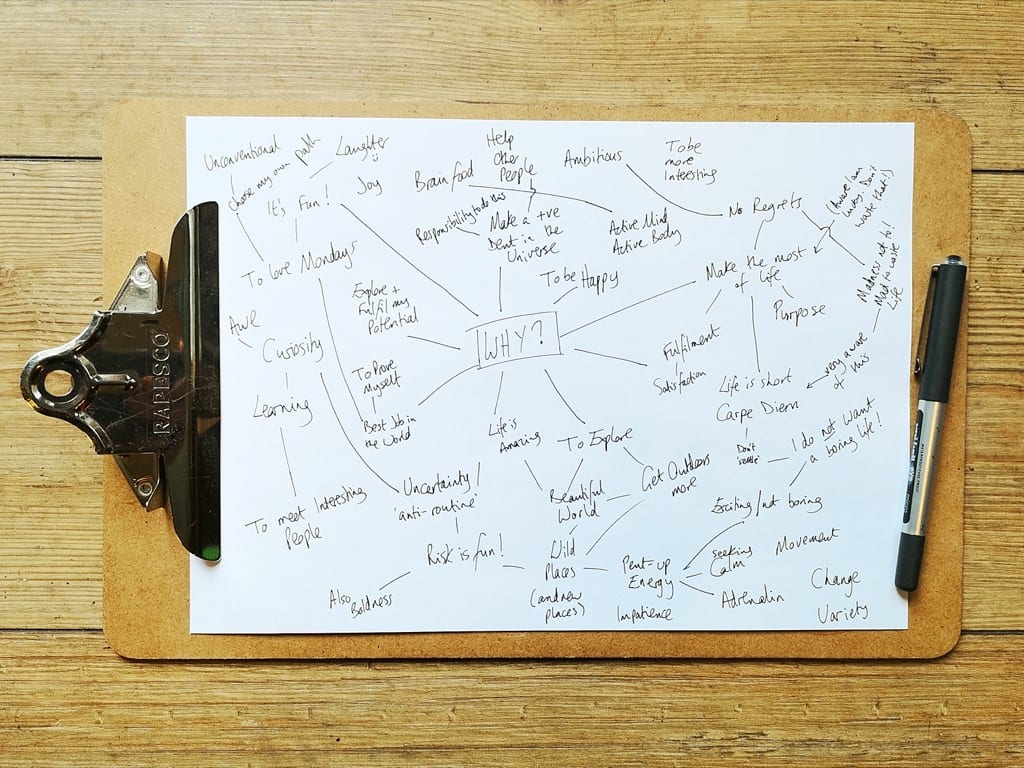 Unconventional
choose my own path
Laughter
It's Fun!
Joy
Brain food
Help
Other
People
Ambitious
To be
more
Interesting
Responsibility to do this
Make a +ve
Dent in the
Universe
Active Mind
Active Body
No Regrets
lucky. Don't
waste that!)
To love Mondays
Explore +
Fulfil my
Potential
To be Happy
Make the most
of life
Madness not to!
Mad to waste
Life
Purpose
Awe
Curiosity
WHY?
Fulfilment
Satisfaction
very aware
of this
To Prove
Myself
Learning
Best Job in
the World
Life is
Amazing
To Explore
Life is short
Carpe Diem
Don't
'settle'
I do not want
a boring life!
To meet Interesting
People
Uncertainty
'anti-routine'
Beautiful
World
Get Outdoors
more
Exciting/not boring
Risk is fun!
Wild
Places
(and new
places)
Pent-up
Energy
seeking
Calm
Movement
Also
Boldness
Impatience
Adrenalin
Change
Variety
RAPESCO